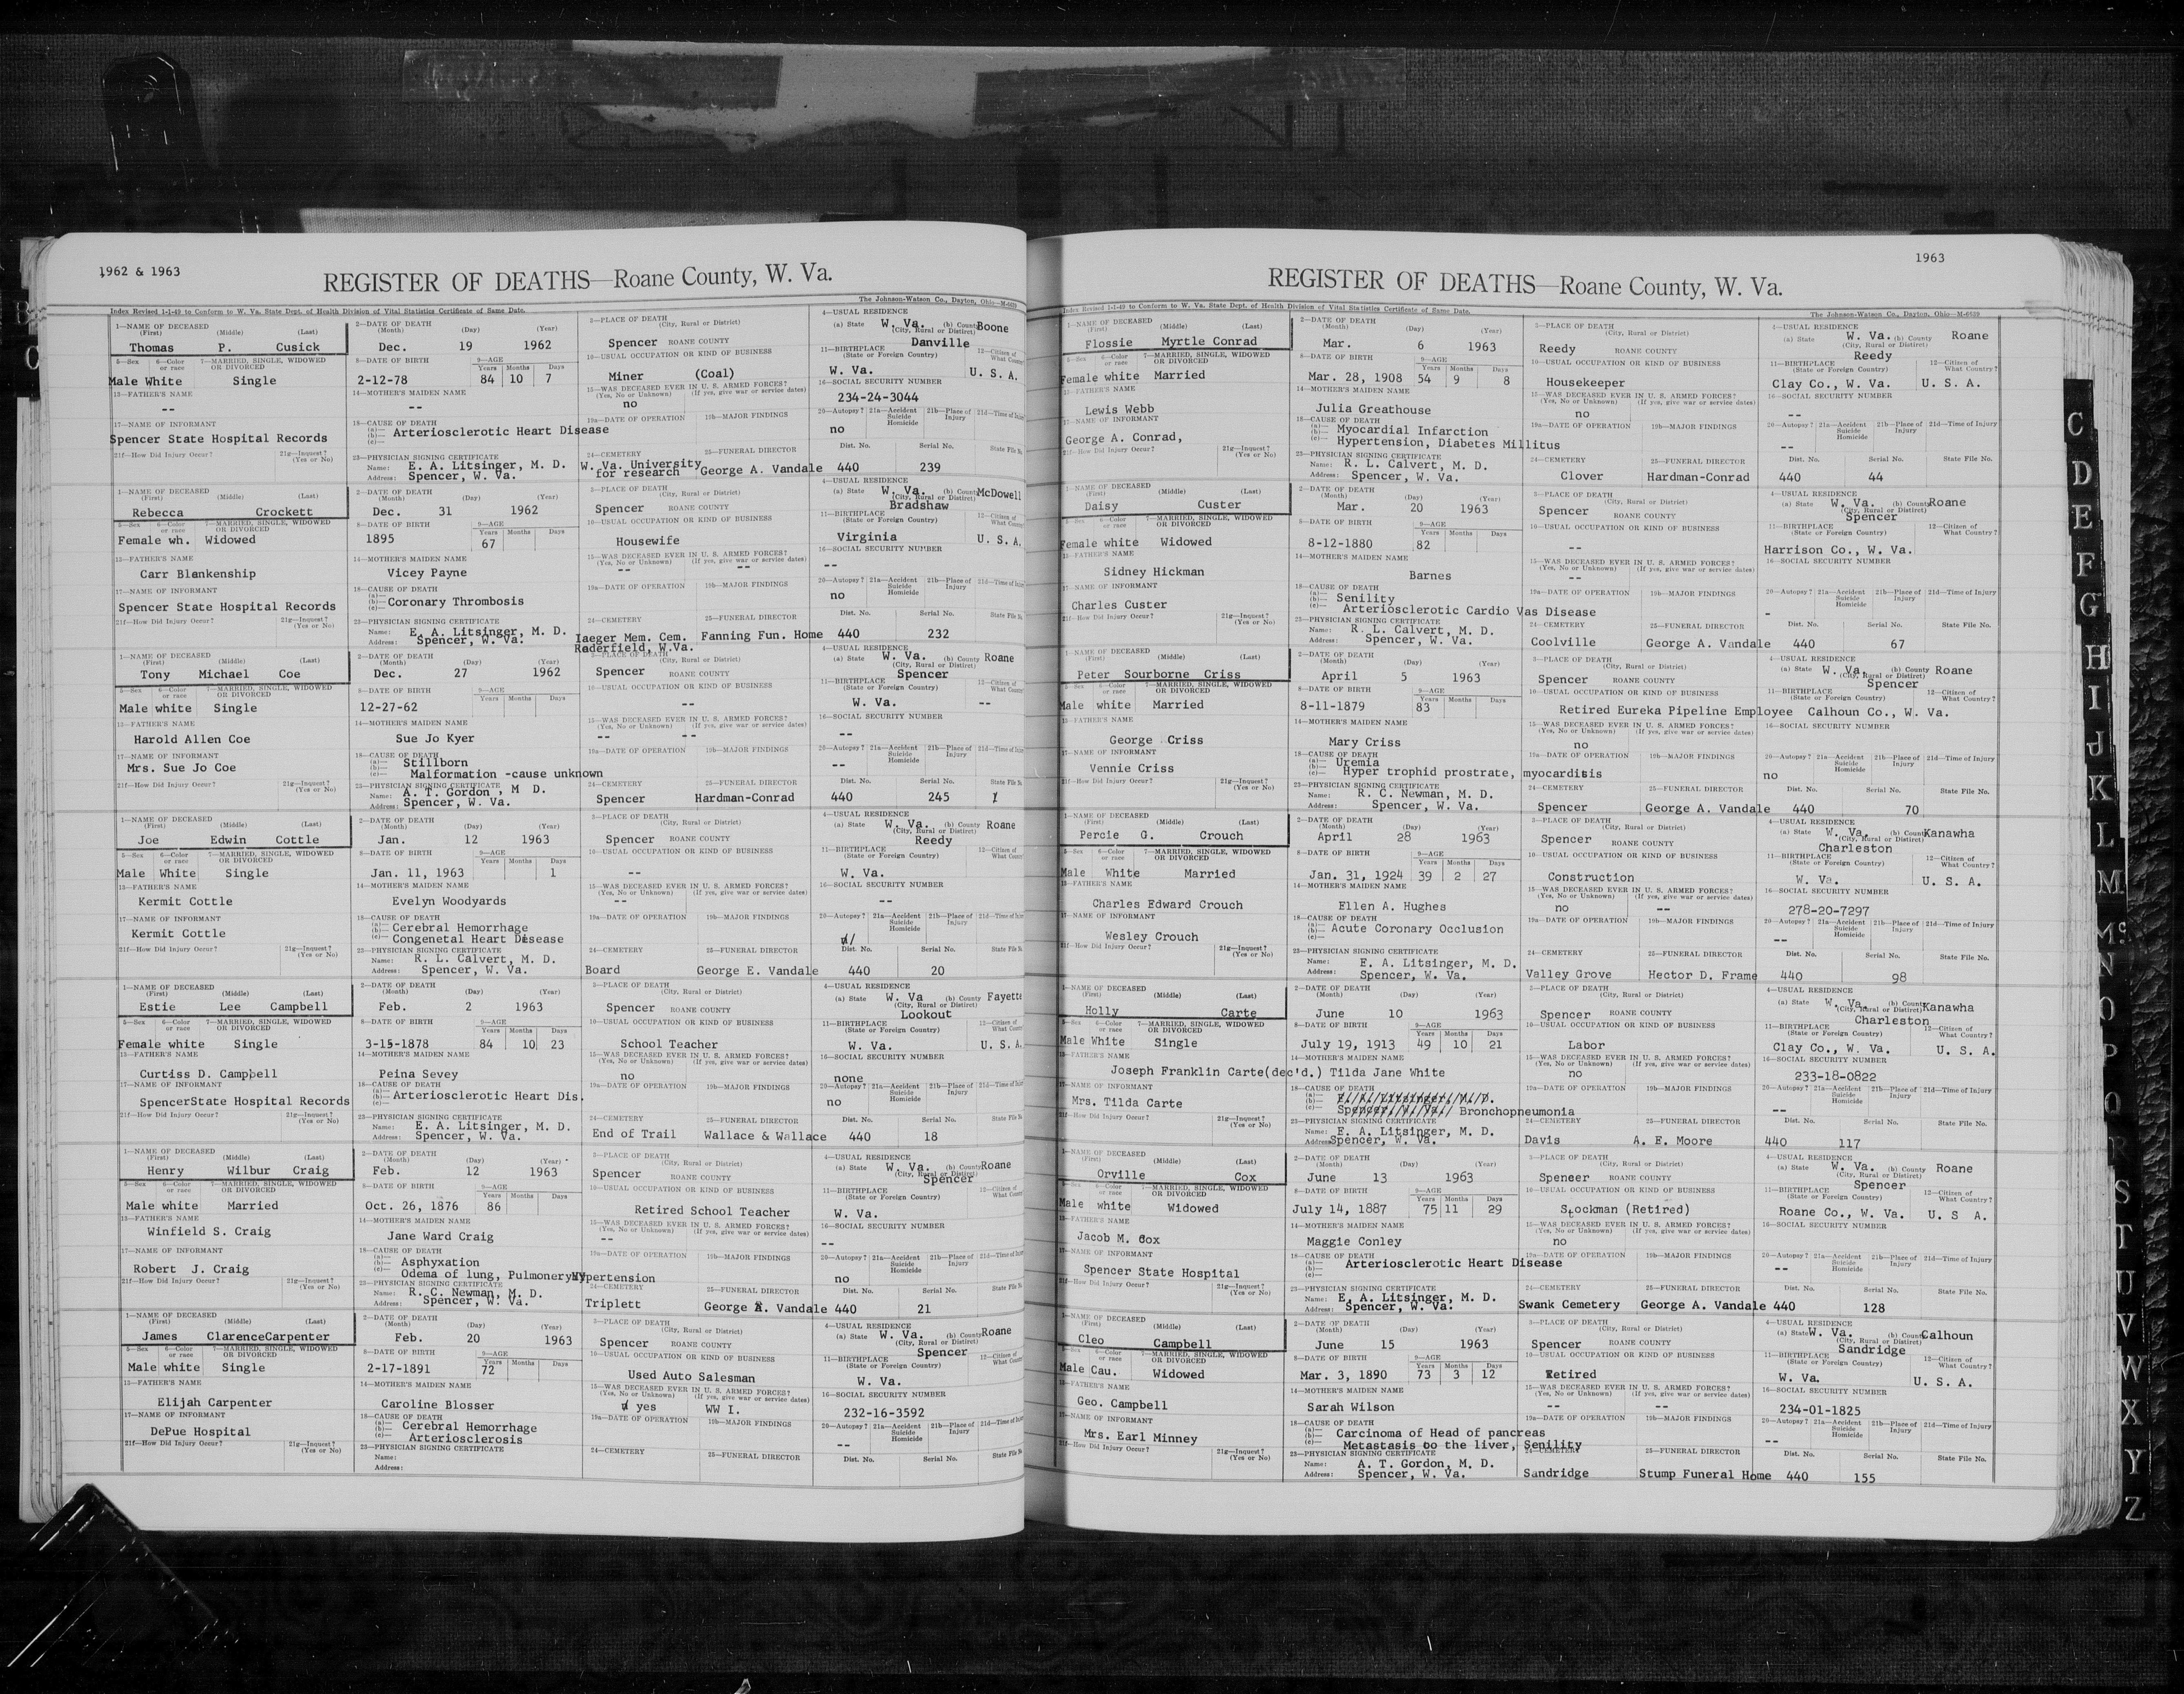 1962 & 1963
REGISTER OF DEATHS—Roane County, W. Va.
Index Revised 1-1-49 to Conform to W. Va. State Dept. of Health Division of Vital Statistics Certificate of Same Date.
The Johnson-Watson Co., Dayton, Ohio—M-6539
Thomas P. Cusick
Dec. 19 1962
Spencer ROANE COUNTY
W. Va. Boone
Danville
Male White Single
2-12-78 84 10 7
Miner (Coal)
W. Va. U. S. A.
-- -- no 234-24-3044
Spencer State Hospital Records
Arteriosclerotic Heart Disease
no
E. A. Litsinger, M. D.
Spencer, W. Va.
W. Va. University
for research
George A. Vandale 440 239
Rebecca Crockett
Dec. 31 1962
Spencer ROANE COUNTY
W. Va. McDowell
Bradshaw
Female wh. Widowed
1895 67
Housewife
Virginia U. S. A.
Carr Blankenship
Vicey Payne
-- --
Spencer State Hospital Records
Coronary Thrombosis
no
E. A. Litsinger, M. D.
Spencer, W. Va.
Iaeger Mem. Cem.
Raderfield, W.Va.
Fanning Fun. Home 440 232
Tony Michael Coe
Dec. 27 1962
Spencer ROANE COUNTY
W. Va. Roane
Spencer
Male white Single
12-27-62
--
W. Va. --
Harold Allen Coe
Sue Jo Kyer
-- -- --
Mrs. Sue Jo Coe
Stillborn
Malformation -cause unknown
--
A. T. Gordon , M D.
Spencer, W. Va.
Spencer Hardman-Conrad 440 245
Joe Edwin Cottle
Jan. 12 1963
Spencer ROANE COUNTY
W. Va. Roane
Reedy
Male White Single
Jan. 11, 1963 1
--
W. Va.
Kermit Cottle
Evelyn Woodyards
-- --
Kermit Cottle
Cerebral Hemorrhage
Congenetal Heart Disease
R. L. Calvert, M. D.
Spencer, W. Va.
Board George E. Vandale 440 20
Estie Lee Campbell
Feb. 2 1963
Spencer ROANE COUNTY
W. Va Fayette
Lookout
Female white Single
3-15-1878 84 10 23
School Teacher
W. Va. U. S. A.
Curtiss D. Campbell
Peina Sevey
no none
SpencerState Hospital Records
Arteriosclerotic Heart Dis.
no
E. A. Litsinger, M. D.
Spencer, W. Va.
End of Trail Wallace & Wallace 440 18
Henry Wilbur Craig
Feb. 12 1963
Spencer ROANE COUNTY
W. Va. Roane
Spencer
Male white Married
Oct. 26, 1876 86
Retired School Teacher
W. Va.
Winfield S. Craig
Jane Ward Craig
-- --
Robert J. Craig
Asphyxation
Odema of lung, Pulmonery Hypertension
no
R. C. Newman, M. D.
Spencer, W. Va.
Triplett George A. Vandale 440 21
James ClarenceCarpenter
Feb. 20 1963
Spencer ROANE COUNTY
W. Va. Roane
Spencer
Male white Single
2-17-1891 72
Used Auto Salesman
W. Va.
Elijah Carpenter
Caroline Blosser
yes WW I.
232-16-3592
DePue Hospital
Cerebral Hemorrhage
Arteriosclerosis
--
1963
REGISTER OF DEATHS—Roane County, W. Va.
Index Revised 1-1-49 to Conform to W. Va. State Dept. of Health Division of Vital Statistics Certificate of Same Date.
The Johnson-Watson Co., Dayton, Ohio—M-6539
Flossie Myrtle Conrad
Mar. 6 1963
Reedy ROANE COUNTY
W. Va. Roane
Reedy
Female white Married
Mar. 28, 1908 54 9 8
Housekeeper
Clay Co., W. Va. U. S. A.
Lewis Webb
Julia Greathouse
no --
George A. Conrad,
Myocardial Infarction
Hypertension, Diabetes Millitus
--
R. L. Calvert, M. D.
Spencer, W. Va.
Clover Hardman-Conrad 440 44
Daisy Custer
Mar. 20 1963
Spencer ROANE COUNTY
W. Va. Roane
Spencer
Female white Widowed
8-12-1880 82
--
Harrison Co., W. Va.
Sidney Hickman
Barnes
--
Charles Custer
Senility
Arteriosclerotic Cardio Vas Disease
-
R. L. Calvert, M. D.
Spencer, W. Va.
Coolville George A. Vandale 440 67
Peter Sourborne Criss
April 5 1963
Spencer ROANE COUNTY
W. Va. Roane
Spencer
Male white Married
8-11-1879 83
Retired Eureka Pipeline Employee Calhoun Co., W. Va.
George Criss
Mary Criss
no
Vennie Criss
Uremia
Hyper trophid prostrate, myocardisis
no
R. C. Newman, M. D.
Spencer, W. Va.
Spencer George A. Vandale 440 70
Percie G. Crouch
April 28 1963
Spencer ROANE COUNTY
W. Va. Kanawha
Charleston
Male White Married
Jan. 31, 1924 39 2 27
Construction
W. Va. U. S. A.
Charles Edward Crouch
Ellen A. Hughes
no --
278-20-7297
Wesley Crouch
Acute Coronary Occlusion
--
E. A. Litsinger, M. D.
Spencer, W. Va.
Valley Grove Hector D. Frame 440 98
Holly Carte
June 10 1963
Spencer ROANE COUNTY
W. Va. Kanawha
Charleston
Male White Single
July 19, 1913 49 10 21
Labor
Clay Co., W. Va. U. S. A.
Joseph Franklin Carte(dec'd.) Tilda Jane White
no
233-18-0822
Mrs. Tilda Carte
Bronchopneumonia
--
E. A. Litsinger, M. D.
Spencer, W. Va.
Davis A. E. Moore 440 117
Orville Cox
June 13 1963
Speneer ROANE COUNTY
W. Va. Roane
Spencer
Male white Widowed
July 14, 1887 75 11 29
Stockman (Retired)
Roane Co., W. Va. U. S A.
Jacob M. Cox
Maggie Conley
no
Spencer State Hospital
Arteriosclerotic Heart Disease
--
E. A. Litsinger, M. D.
Spencer, W. Va.
Swank Cemetery George A. Vandale 440 128
Cleo Campbell
June 15 1963
Spencer ROANE COUNTY
W. Va. Calhoun
Sandridge
Male Cau. Widowed
Mar. 3, 1890 73 3 12
Retired
W. Va. U. S. A.
Geo. Campbell
Sarah Wilson
-- --
234-01-1825
Mrs. Earl Minney
Carcinoma of Head of pancreas
Metastasis to the liver, Senility
--
A. T. Gordon, M. D.
Spencer, W. Va.
Sandridge Stump Funeral Home 440 155
C
D
E
F
G
H
I
J
K
L
M
Mc
N
O
P
Q
R
S
T
U
V
W
X
Y
Z